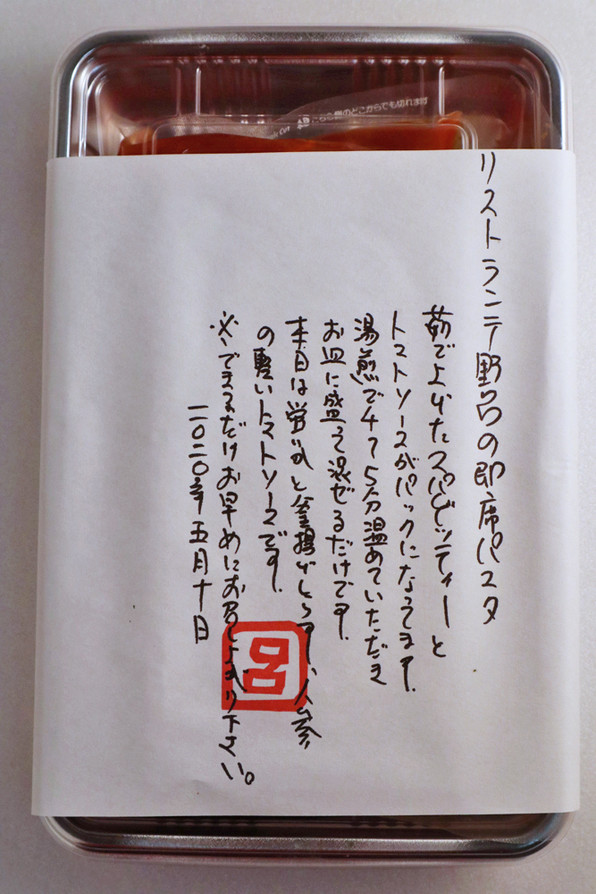 こちら側のどこからでも切れます
リストランテ野呂の即席パスタ
茹で上げたスパゲッティーと
トマトソースがパックになってます。
湯煎で4〜5分温めていただき
お皿に盛って混ぜるだけです。
本日は蛍いかと釜揚げしらす、人参
の軽いトマトソースです。
※できるだけお早めにお召し上がり下さい。
二〇二〇年五月十日
呂